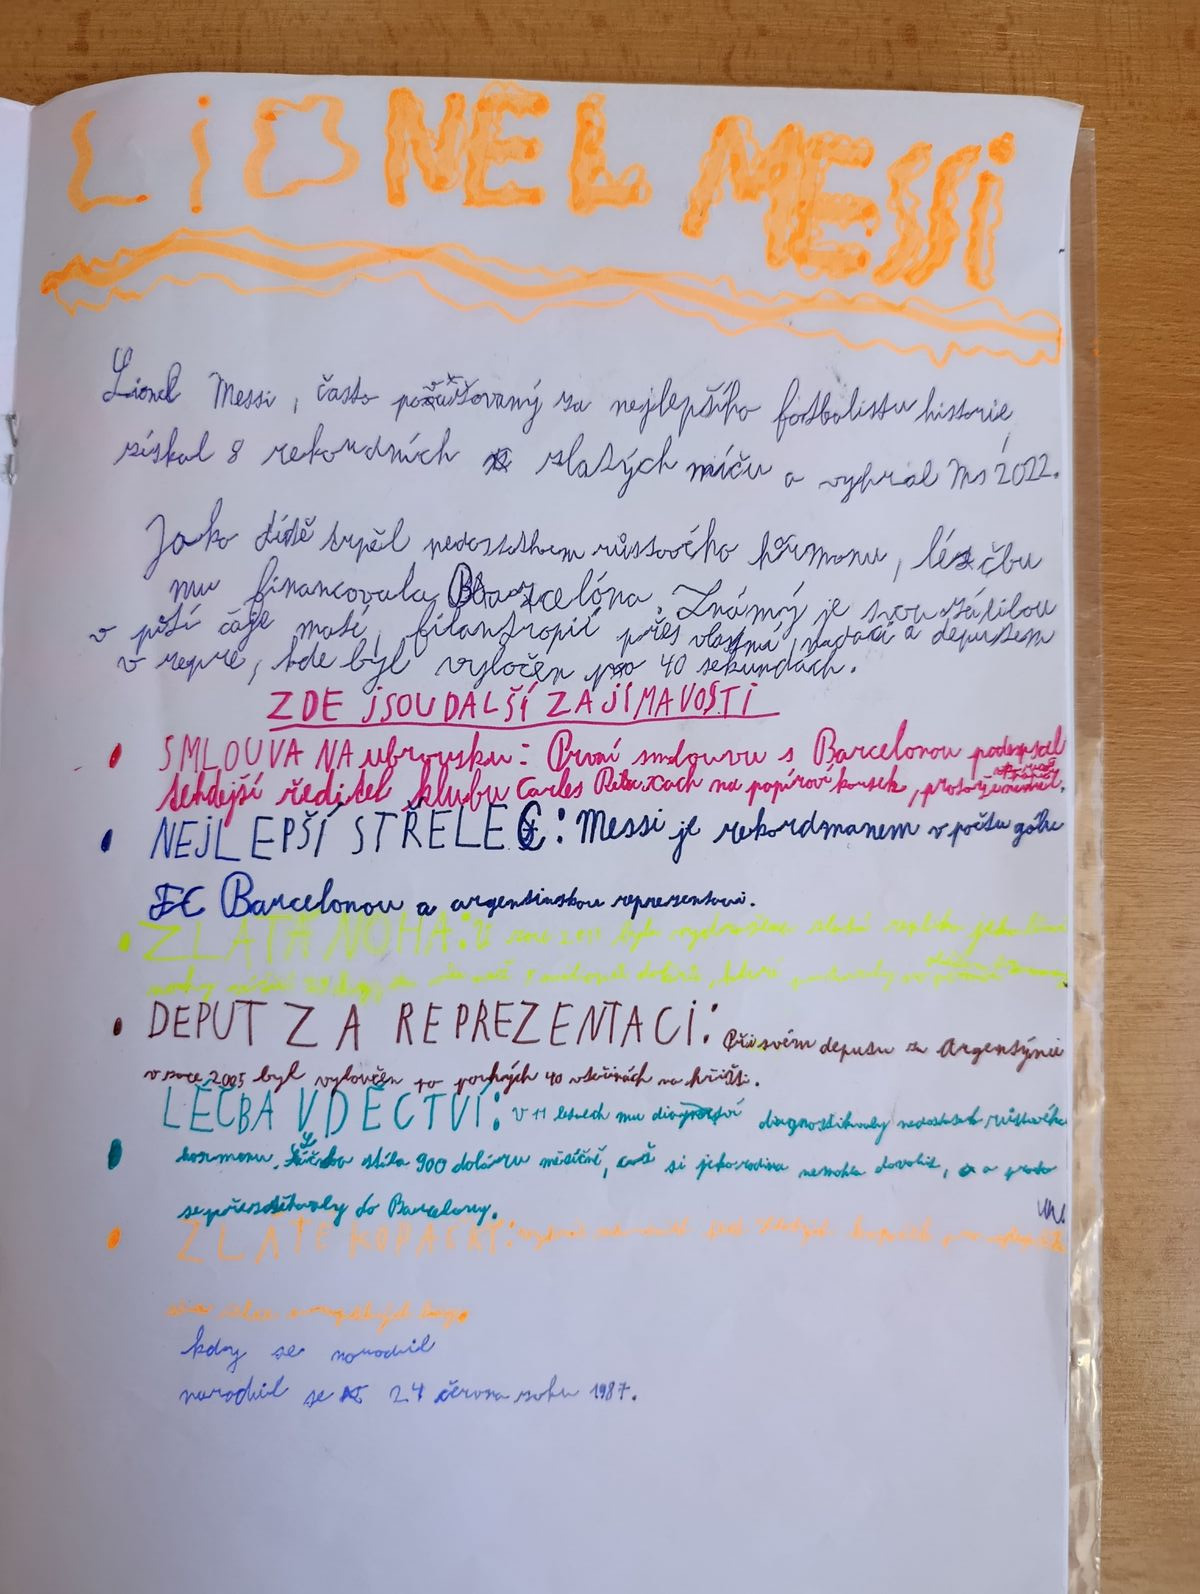 LiONEL MESSi
Lionel Messi, často považovaný za nejlepšího fotbalistu historie,
získal 8 rekordních zlatých míču a vyhrál Ms 2022.
Jako dítě trpěl nedostatkem růstového hormonu, léčbu
mu financovala Barcelóna. Známý je svou zálibou
v pití čaje maté, filantropií přes vlastní nadaci a deputem
v repre, kde byl vyločen po 40 sekundách.
ZDE JSOU DALŠÍ ZAJÍMAVOSTI
SMLOUVA NA ubrousku: První smlouvu s Barcelonou podepsal
tehdejší ředitel klubu Carles Rexach na papírový kousek, protože neměl.
NEJLEPŠÍ STŘELEC: Messi je rekordmanem v počtu gólu
FC Barcelonou a argentinskou reprezentaci.
ZLATÁ NOHA: V roce 2011 byla zlatá replika jeho levé
nohy
DEPUT ZA REPREZENTACI: Při svém deputu za Argentýnu
v roce 2005 byl vyločen po pouhých 40 vteřinách na hřišti.
LÉČBA V DĚCTVÍ: v 11 letech mu diagnostikovaly nedostatek růstového
hormonu. Léčba stála 900 dolaru měsíčně, což si jeho rodina nemohla dovolit, a proto
se přestěhovaly do Barcelony.
ZLATÉ KOPAČKY: zlatých kopaček pro
kdy se narodil
narodil se 24 června roku 1987.